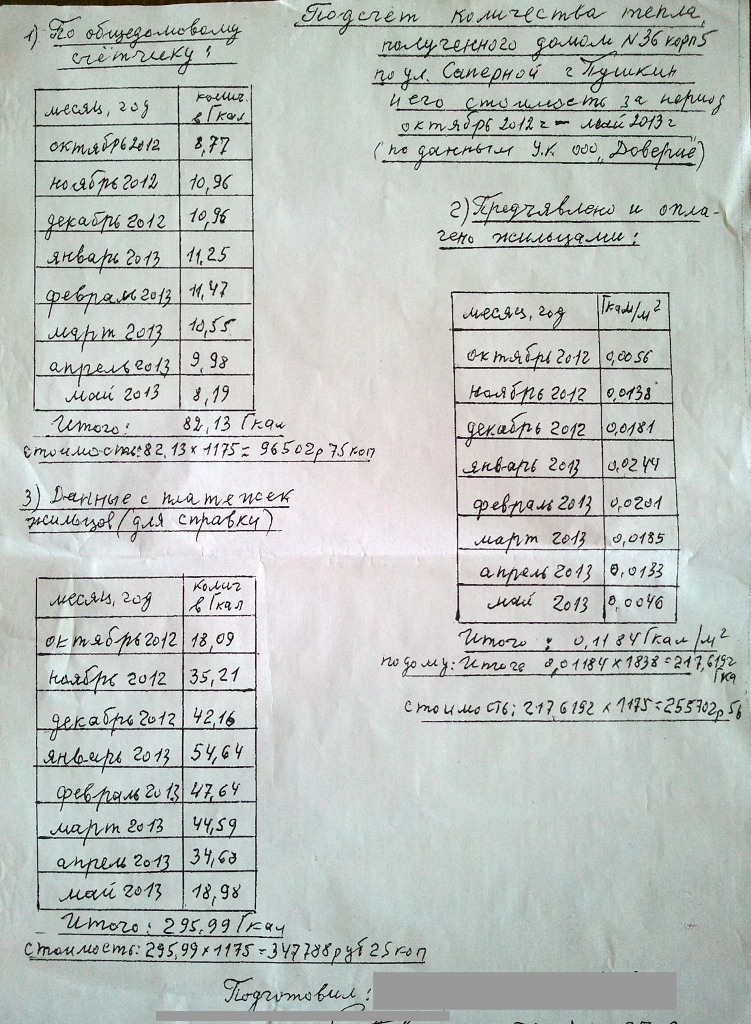 Подсчёт количества тепла,
полученного домом N36 корп5
по ул. Саперной г Пушкин
и его стоимость за период
октябрь 2012г - май 2013г
(по данным У.К ООО „Доверие")
1) По общедомовому
счётчику:
месяц, год колич. в Гкал
октябрь 2012 8,77
ноябрь 2012 10,96
декабрь 2012 10,96
январь 2013 11,25
февраль 2013 11,47
март 2013 10,55
апрель 2013 9,98
май 2013 8,19
Итого: 82,13 Гкал
стоимость: 82,13 × 1175 = 96502р 75 коп
2) Предъявлено и опла-
чено жильцами:
месяц, год Гкал/м²
октябрь 2012 0,0056
ноябрь 2012 0,0138
декабрь 2012 0,0181
январь 2013 0,0244
февраль 2013 0,0201
март 2013 0,0185
апрель 2013 0,0133
май 2013 0,0046
Итого: 0,1184 Гкал/м²
по дому: Итого 0,01184 × 1838 = 217,6192
Гка
стоимость: 217,6192 × 1175 = 255702р 56
3) Данные с платежек
жильцов (для справки)
месяц, год колич в Гкал
октябрь 2012 18,09
ноябрь 2012 35,21
декабрь 2012 42,16
январь 2013 54,64
февраль 2013 47,64
март 2013 44,59
апрель 2013 34,68
май 2013 18,98
Итого: 295,99 Гкал
стоимость: 295,99 × 1175 = 347788 руб 25 коп
Подготовил: